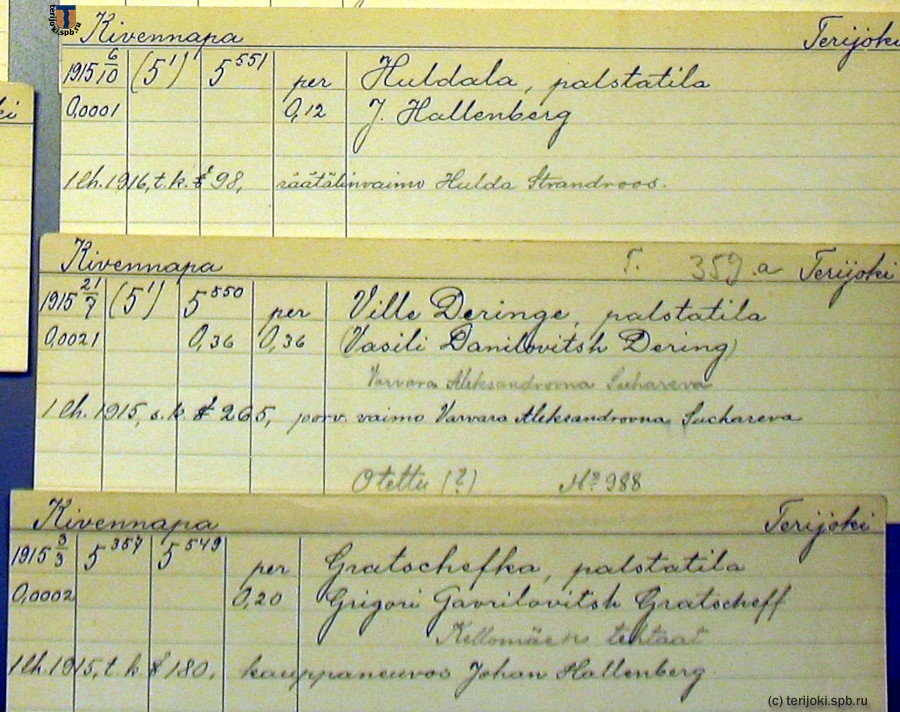 terijoki.spb.ru
Kivennapa Terijoki
1915 6/10 (5¹) 5⁵⁵¹ per Huldala, palstatila
0,0001 0,12 J. Hallenberg
1 lh. 1916, t. k. § 98, räätälinvaimo Hulda Strandroos.
ki
Kivennapa T. 359.a Terijoki
1915 21/7 (5¹) 5⁵⁵⁰ per Ville Deringe, palstatila
0,0021 0,36 0,36 (Vasili Danilovitsh Dering)
Varvara Aleksandrovna Suchareva
1 lh. 1915, s. k. § 265, porv. vaimo Varvara Aleksandrovna Suchareva
Otettu (?) Nº 988
Kivennapa Terijoki
1915 3/3 5³⁵⁷ 5⁵⁴⁹ per Gratschefka, palstatila
0,0002 0,20 Grigori Gavrilovitsh Gratscheff
Kellomäen tehtaat
1 lh. 1915, t. k. § 180, kauppaneuvos Johan Hallenberg
(c) terijoki.spb.ru